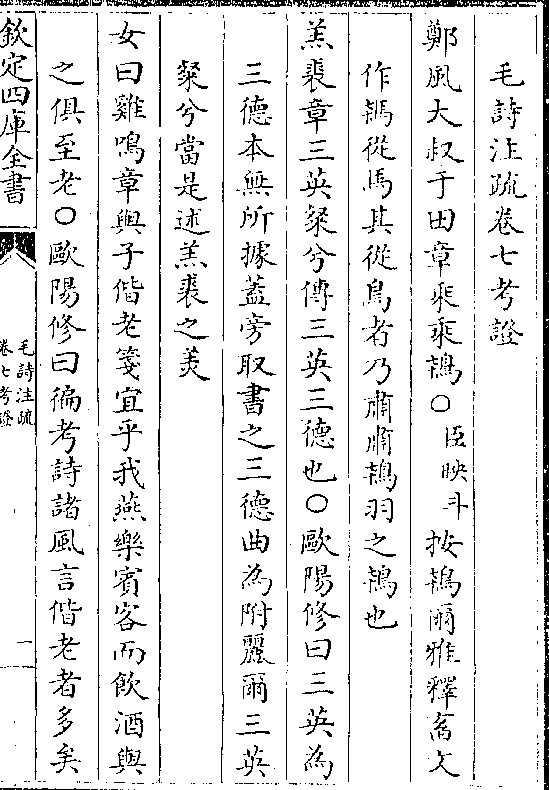 毛詩注疏卷七考證
鄭風大叔于田章乘乘鴇○臣映斗按鴇爾雅釋畜文
作䮀從馬其從鳥者乃肅肅鴇羽之鴇也
羔裘章三英粲兮傳三英三德也○歐陽修曰三英為
三德本無所據蓋旁取書之三德曲為附麗爾三英
粲兮當是述羔裘之美
女曰雞鳴章與子偕老箋宜乎我燕樂賓客而飲酒與
之俱至老○歐陽修曰徧考詩諸風言偕老者多矣
欽定四庫全書
毛詩注疏
卷七考證
一